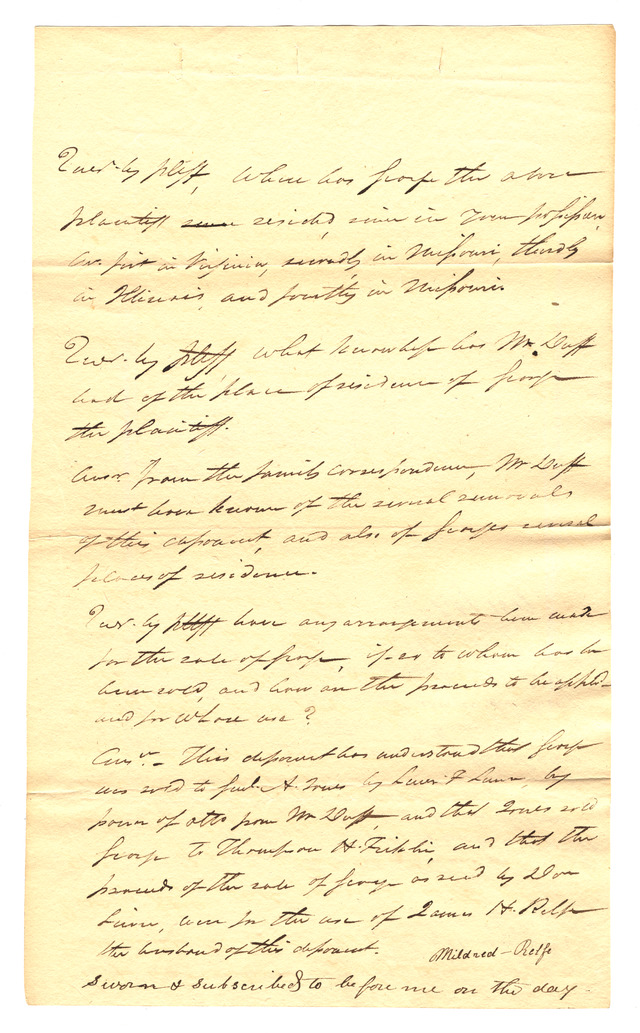 Quer. by pltff, Where has George the above
plaintiff since resided, since in your possession,
Ans. first in Virginia, secondly in Missouri, thirdly
in Illinois, and fourthly in Missouri.
Quer. by pltff, what knowledge has Mr. Duff
had of the place of residence of George
the plaintiff.
Ansr. From the family correspondence, Mr Duff
must have known of the several removals
of this deponent, and also of Georges several
places of residence.
Quer. by pltff have any arrangements been made
for the sale of George, if so to whom has he
been sold, and how are the proceeds to be applied
and for whose use?
Ansr. - This deponent has understood that George
was sold to A. Jones by Lewis F Linn, by
power of atto from Mr Duff, and that Jones sold
George to Thompson H. and that the
proceeds of the sale of George as sold by Doc
Linn, were for the use of James H. Relfe
the husband of this deponent.
Mildred - Relfe
Sworn & subscribed to before me on the day